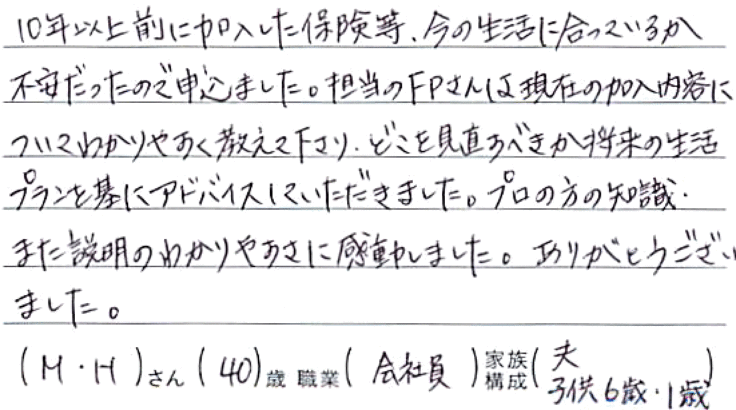 10年以上前に加入した保険等、今の生活に合っているか
不安だったので申込ました。担当のFPさんは現在の加入内容に
ついてわかりやすく教えて下さり、どこを見直すべきか将来の生活
プランを基にアドバイスしていただきました。プロの方の知識・
また説明のわかりやすさに感動しました。ありがとうござい
ました。
(M・H)さん (40)歳 職業(会社員)家族構成(夫
子供6歳・1歳)